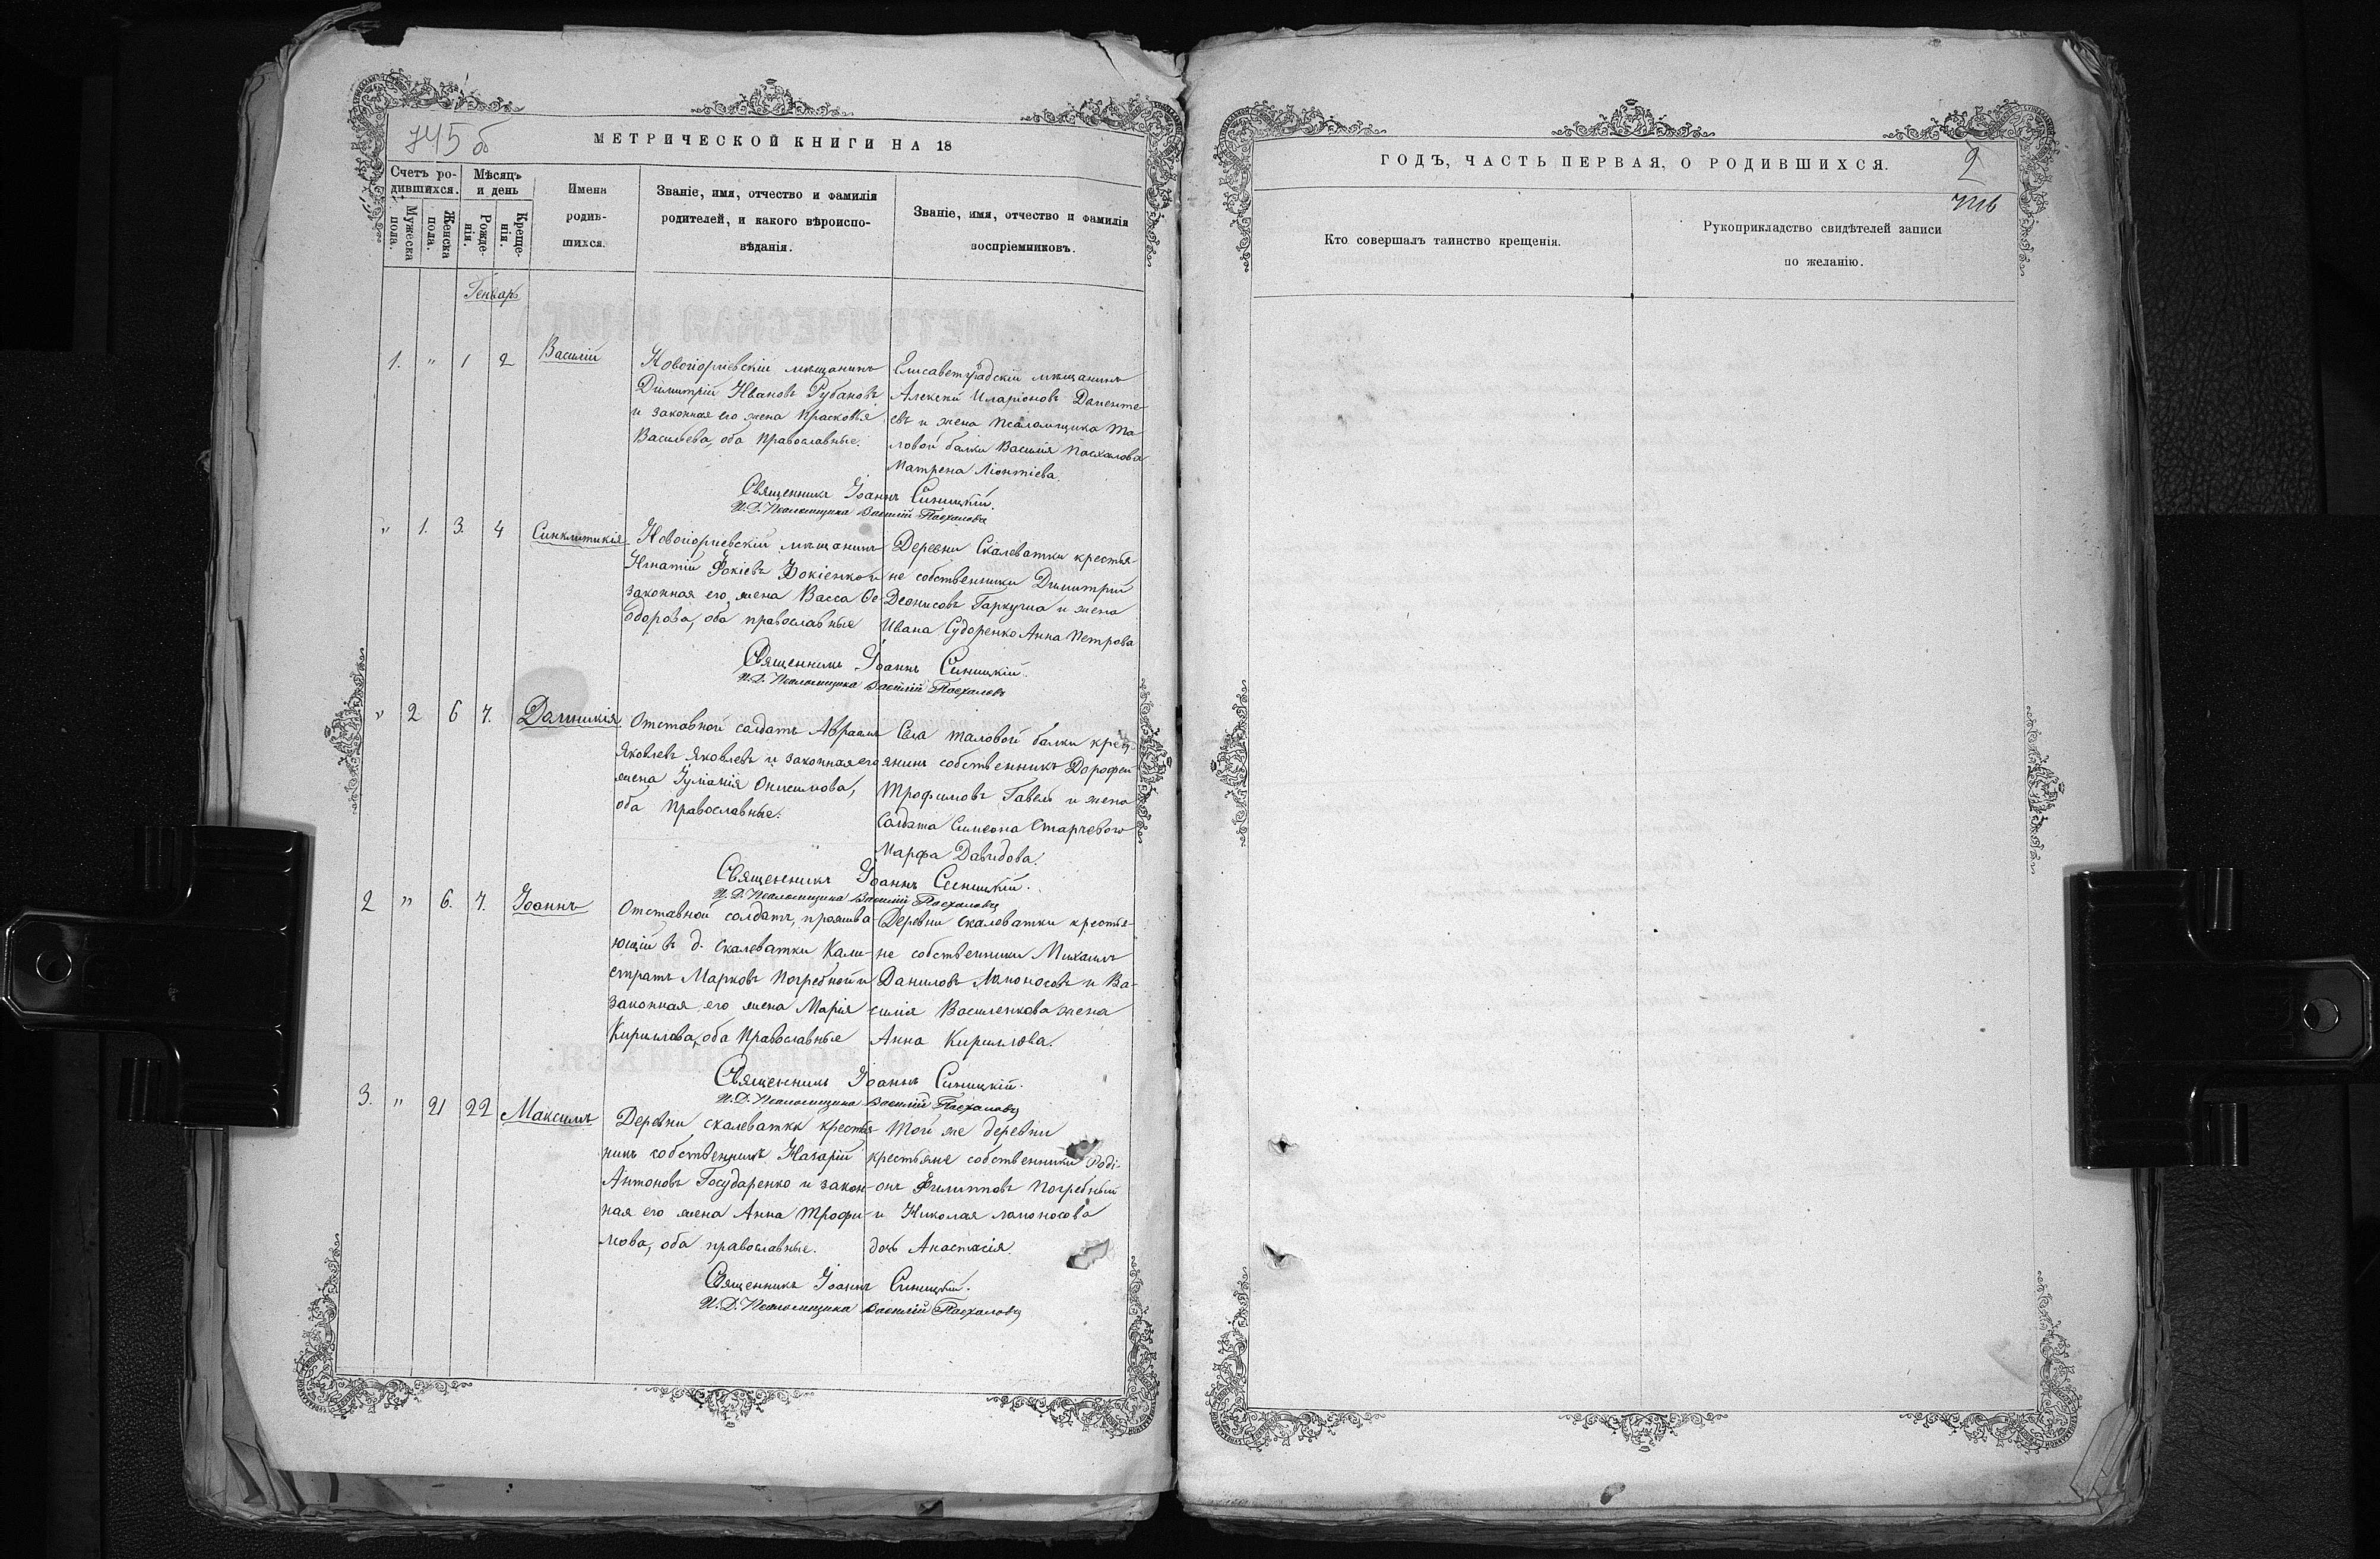 745 об
МЕТРИЧЕСКОЙ КНИГИ НА 18
Счетъ ро-
дившихся.
Мѣсяцъ
и день
Мужеска
пола.
Женска
пола.
Рожде-
нія.
Креще-
нія.
Имена
родив-
шихся.
Званіе, имя, отчество и фамилія
родителей, и какого вѣроиспо-
вѣданія.
Званіе, имя, отчество и фамилія
воспріемниковъ.
Генварь
1. " 1 2 Василій
Новогоргіевскій мѣщанинъ
Димитрій Ивановъ Рубановъ
и законная его жена Прасковья
Васильева, оба Православные.
Елисаветградскій мѣщанинъ
Алексѣй Иларіоновъ Доменте-
евъ и жена Псаломщика Та-
ловой балки Василія Пасхалова
Матрена Ліонтіева.
Священникъ Іоаннъ Синицкій.
И. Д. Псаломщика Василій Пасхаловъ
" 1. 3. 4 Синклитикія
Новогоргіевскій мѣщанинъ
Игнатій Фокіевъ Фокіенко и
законная его жена Васса Ѳе-
одорова, оба православные
Деревни Скалеватки крестья-
не собственники Димитрій
Деонисовъ Гаркуша и жена
Ивана Сидоренко Анна Петрова
Священникъ Іоаннъ Синицкій.
И. Д. Псаломщика Василій Пасхаловъ
" 2 6 7. Домникія
Отставной солдатъ Авраамъ
Яковлевъ Яковлевъ и законная его
жена Іуліанія Онисимова,
оба Православные.
Села Таловой балки крест-
янинъ собственникъ Дорофей
Трофимовъ Гавель и жена
Солдата Симеона Старчевого
Марфа Давидова.
Священникъ Іоаннъ Синицкій.
И. Д. Псаломщика Василій Пасхаловъ
2 " 6. 7. Іоаннъ
Отставной солдатъ, прожива-
ющій въ д. Скалеватки Кали-
стратъ Марковъ Погребной и
законная его жена Марія
Кириллова, оба Православные
Деревни Скалеватки крестья-
не собственники Михаилъ
Даниловъ Ломоносовъ и Ва-
силія Василенкова жена
Анна Кириллова.
Священникъ Іоаннъ Синицкій.
И. Д. Псаломщика Василій Пасхаловъ
3. " 21 22 Максимъ
Деревни Скалеватки крестья-
нинъ собственникъ Назарій
Антоновъ Государенко и закон-
ная его жена Анна Трофи-
мова, оба православные.
Той же деревни
крестьяне собственники Роді-
онъ Филипповъ Погребный
и Николая Ломоносова
дочь Анастасія.
Священникъ Іоаннъ Синицкій.
И. Д. Псаломщика Василій Пасхаловъ
ГОДЪ, ЧАСТЬ ПЕРВАЯ, О РОДИВШИХСЯ.
2
Кто совершалъ таинство крещенія.
Рукоприкладство свидѣтелей записи
по желанію.